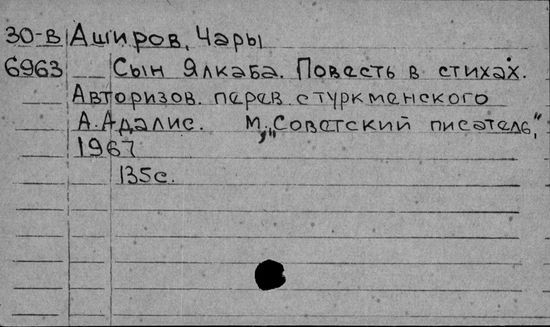 30-В Аширов, Чары
6963 Сын Ялкаба. Повесть в стихах.
Авторизов. перев. с туркменского
А. Адалис. М., „Советский писатель",
1967
135с.